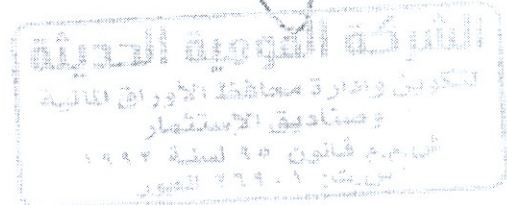 الشركة القومية الحديثة
لتكوين وادارة محافظ الأوراق المالية
وصناديق الاستثمار
ش.م.م قانون ٩٥ لسنة ١٩٩٢
س.ت: